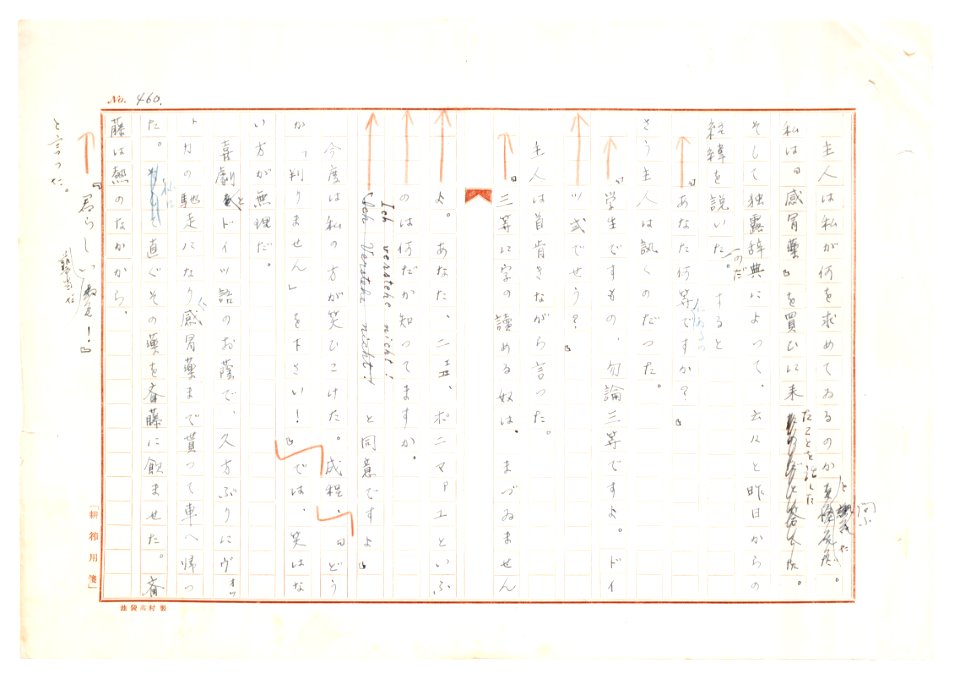 No. 460.
主人は私が何を求めてゐるのかと
問
私は『感冒薬』を買ひに来たことを話した
そして独露辞典によって、云々と昨日からの
経緯を説いた。すると
のだ
『あなた何等ですか?』
さう主人は訊くのだった。
『学生ですもの、勿論三等ですよ。ドイ
ツ式でせう?』
主人は首肯きながら言った。
『三等に字の讀める奴は、まづゐません
よ。あなた、ニェ、ポニマアユといふ
のは何だか知ってますか。
Ich verstehe nicht!
Ich Verstehe nicht! と同意ですよ』
今度は私の方が笑ひこけた。成程、『どう
か「判りません」を下さい!』では、笑はな
い方が無理だ。
喜劇とドイツ語のお蔭で、久方ぶりにウオッ
トカの馳走になり、感冒薬まで貰って車へ帰っ
た。私は直ぐその薬を斎藤に飲ませた。斎
藤は熱のなかから、
『君らしいね!』
と言った。
「耕雑用箋」
池袋高村製